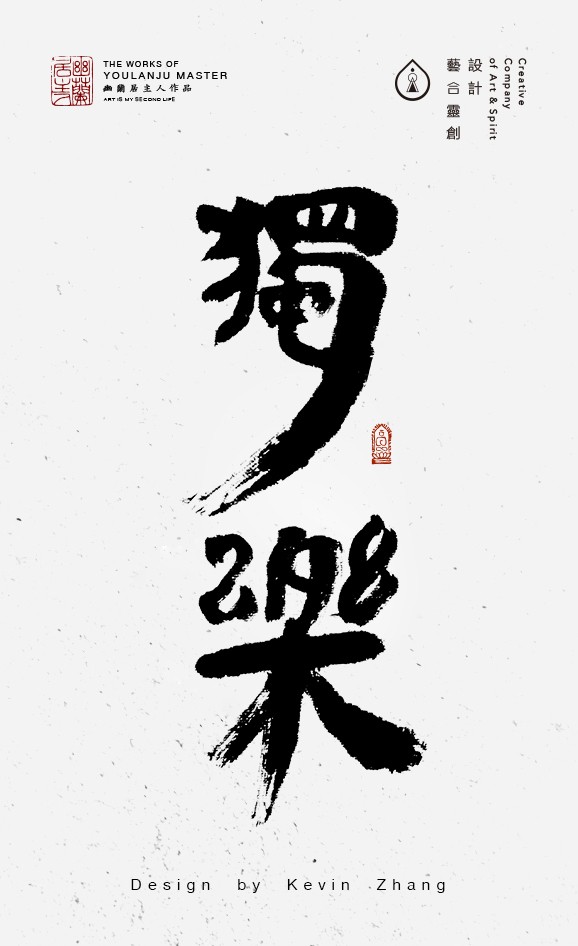 幽蘭居士
THE WORKS OF
YOULANJU MASTER
幽蘭居主人作品
ART IS MY SECOND LIFE
Creative
Company
of Art & Spirit
設計
藝合靈創
獨
樂
Design by Kevin Zhang